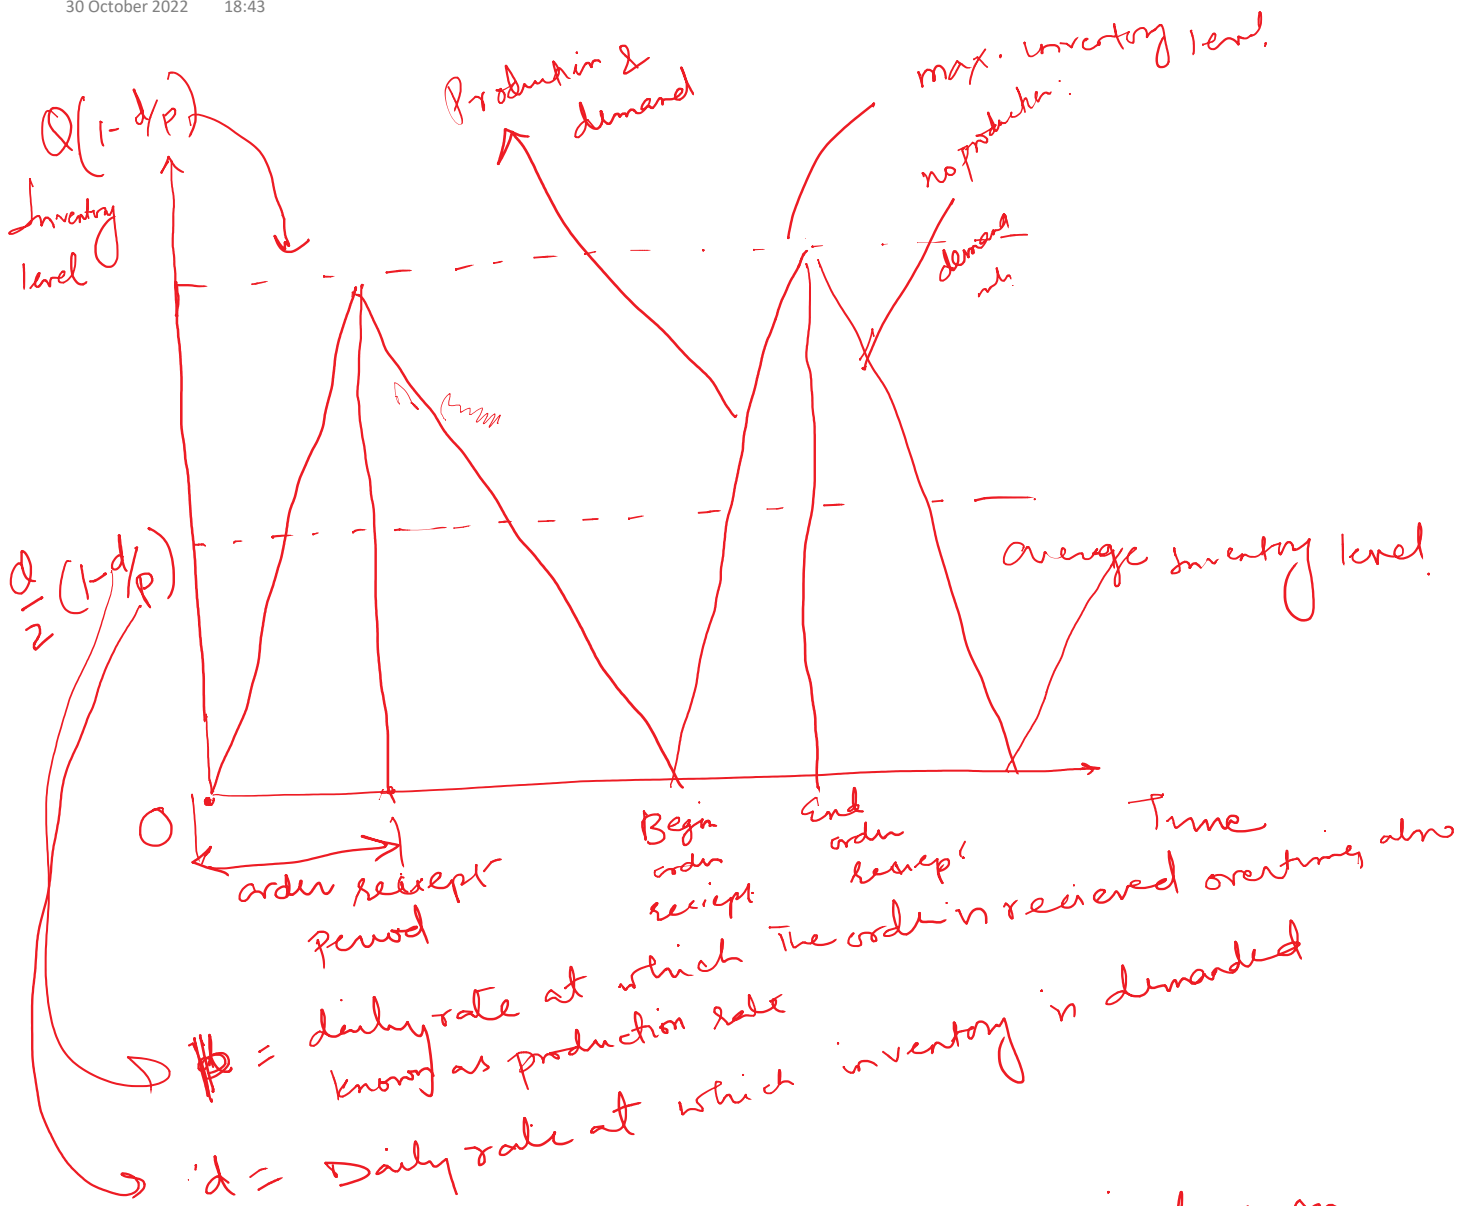 30 October 2022 18:43
Q(1-d/p)
Inventory
level
Production &
demand
max. inventory level.
no production.
demand
Q/2 (1-d/p)
average inventory level.
O
order receipt
period
Begin
order
reciept
End
order
Time
p = daily rate at which The order is recieved overtime, also
known as production rate
d = Daily rate at which inventory is demanded